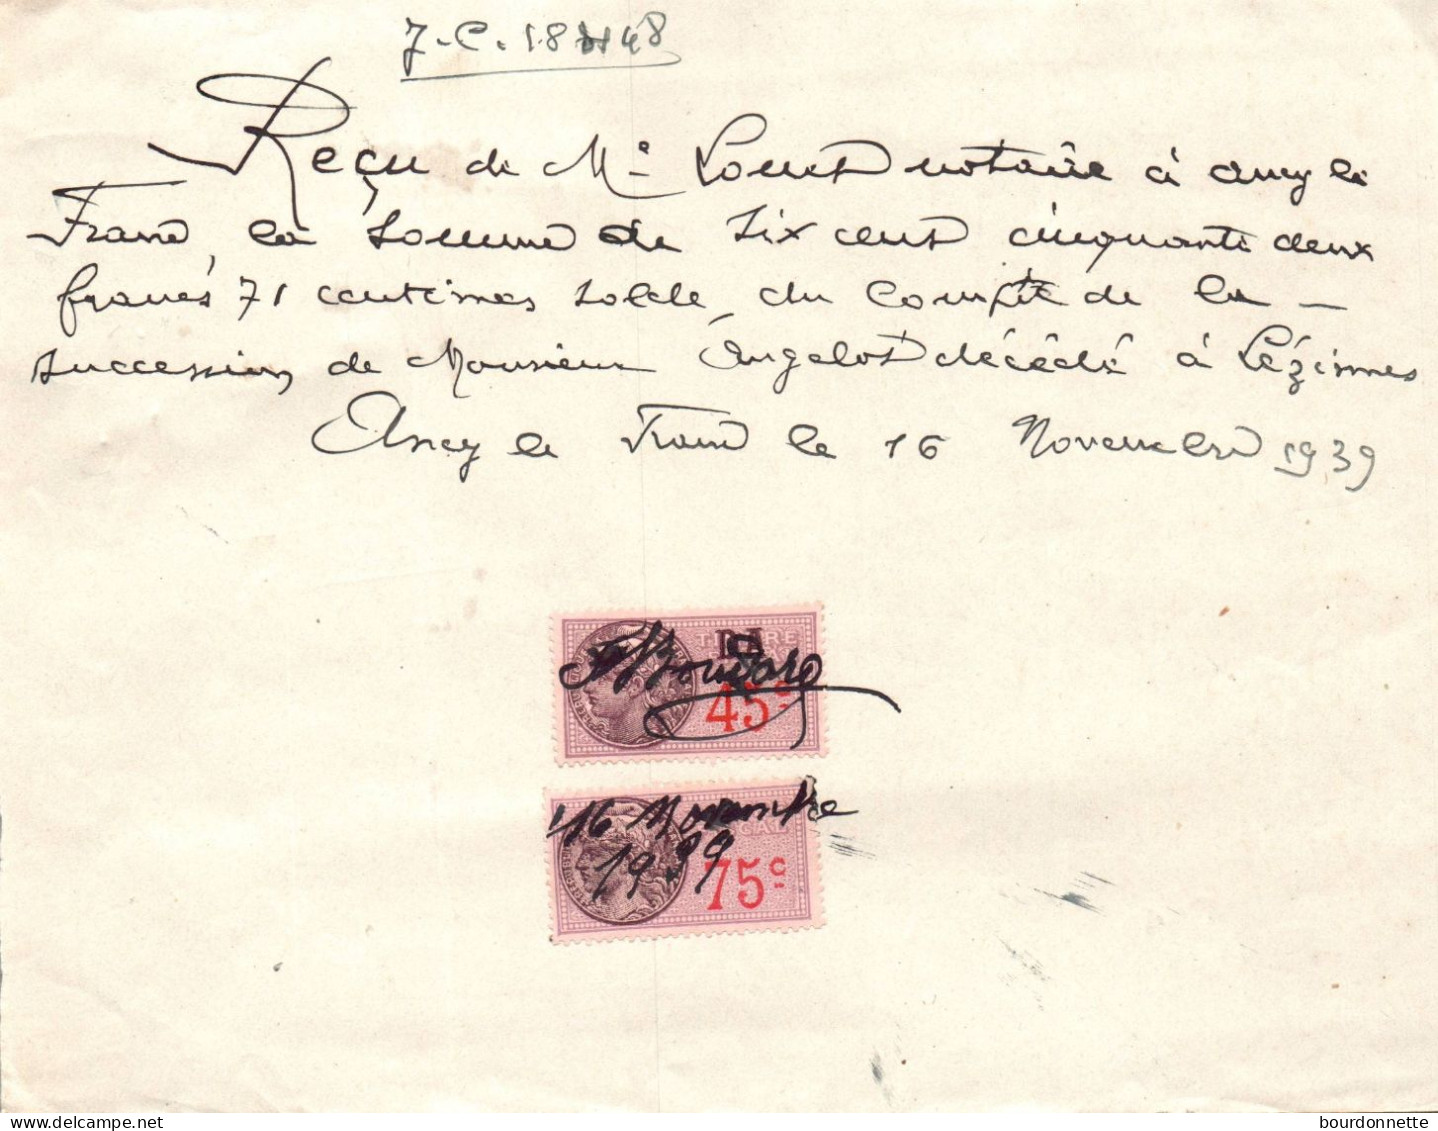 J.C. 18 N 48
Reçu de Me Louet notaire à ancy le
Franc, la somme de six cent cinquante deux
francs 71 centimes solde du Compte de la
succession de Monsieur Angelot décédé à Lézinnes
Ancy le Franc le 16 Novembre 1939
45c
16 Novembre
1939
75c
delcampe.net
bourdonnette